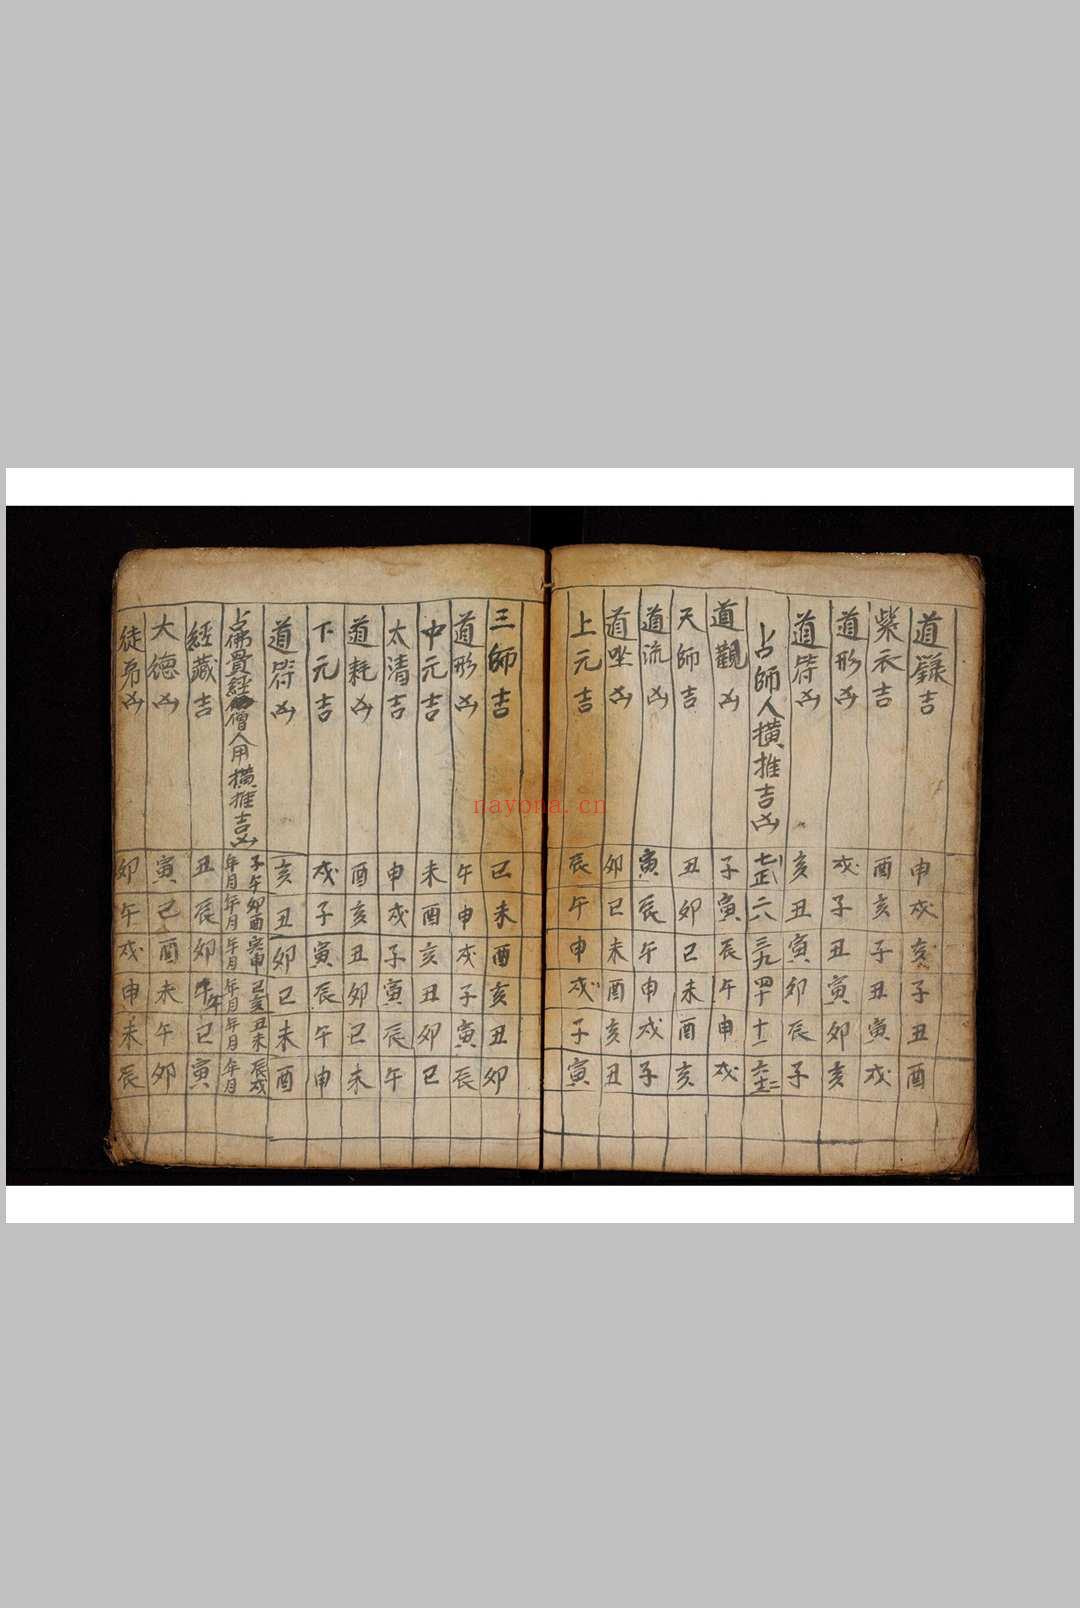 道籙吉 申戌亥子丑酉
柴衣吉 酉亥子丑寅戌
道形凶 戌子丑寅卯亥
道符凶 亥丑寅卯辰子
占師人横推吉凶 七正 二八 三九 四十 十一 六十二
道觀凶 子寅辰午申戌
天師吉 丑卯巳未酉亥
道流凶 寅辰午申戌子
道坐凶 卯巳未酉亥丑
上元吉 辰午申戌子寅
三師吉 巳未酉亥丑卯
道形凶 午申戌子寅辰
中元吉 未酉亥丑卯巳
太清吉 申戌子寅辰午
道耗凶 酉亥丑卯巳未
下元吉 戌子寅辰午申
道符凶 亥丑卯巳未酉
占佛貴經僧人用横推吉凶 子午年月 卯酉年月 寅申年月 巳亥年月 丑未年月 辰戌年月
經藏吉 丑辰卯午巳寅
大德凶 寅巳酉未午卯
徒弟凶 卯午戌申未辰
nayona.cn